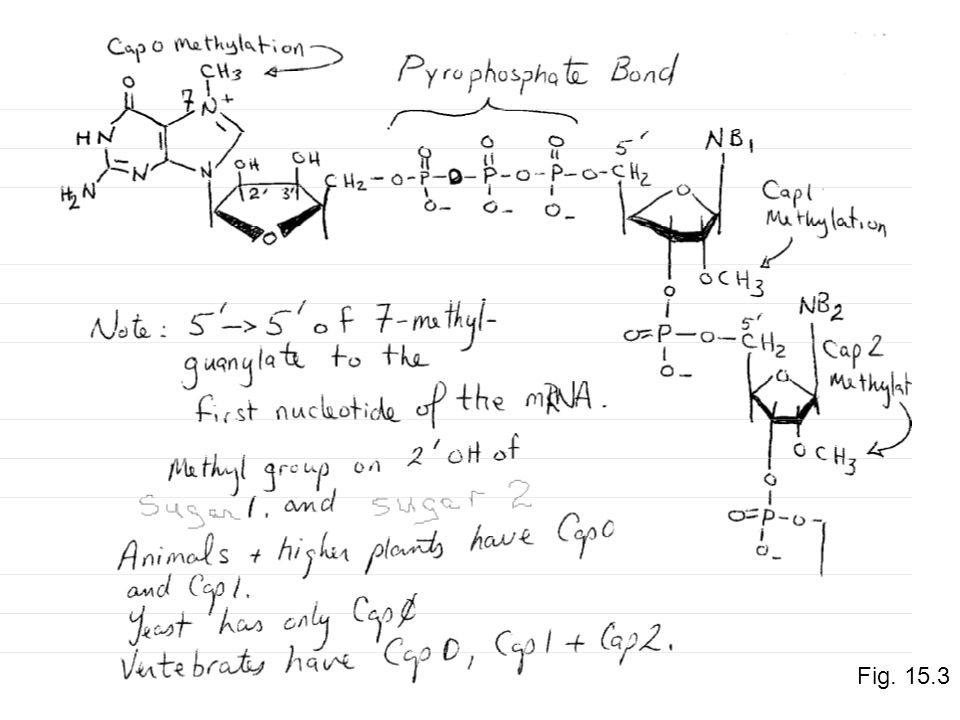 Cap 0 methylation
CH3
O
7 N+
HN
N
N
H2N
OH OH
2' 3'
O
Pyrophosphate Bond
CH2-O-P-O-P-O-P-O-CH2
O O O
O- O- O-
5'
NB1
O
Cap1
Methylation
OCH3
O
O=P-O-CH2
O-
5'
NB2
O
Cap 2
Methylat
OCH3
O
O=P-O-
O-
Note: 5'->5' of 7-methyl-
guanylate to the
first nucleotide of the mRNA.
Methyl group on 2'OH of
Sugar 1. and sugar 2
Animals + higher plants have Cap0
and Cap1.
Yeast has only Cap0
Vertebrates have Cap0, Cap1 + Cap2.
Fig. 15.3